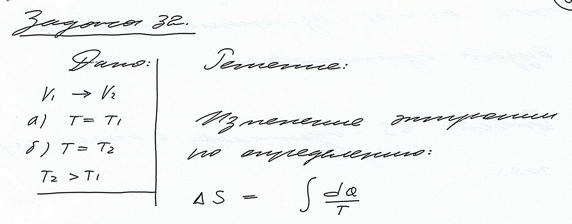 Задача 32.
Дано:
V₁ → V₂
а) T = T₁
б) T = T₂
T₂ > T₁
Решение:
Изменение энтропии
по определению:
ΔS = ∫ dQ/T